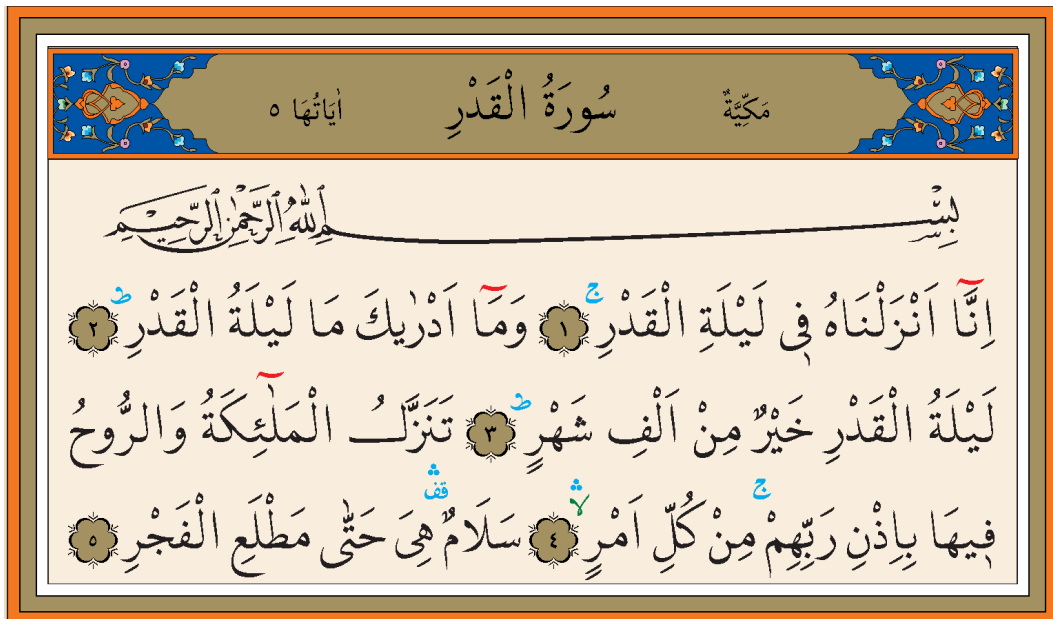 مَكِّيَّةٌ سُورَةُ الْقَدْرِ اٰيَاتُهَا ٥
بِسْمِ اللّٰهِ الرَّحْمٰنِ الرَّحِيمِ
اِنَّٓا اَنْزَلْنَاهُ فٖى لَيْلَةِ الْقَدْرِۚ ﴿١﴾ وَمَٓا اَدْرٰيكَ مَا لَيْلَةُ الْقَدْرِؕ ﴿٢﴾
لَيْلَةُ الْقَدْرِ خَيْرٌ مِنْ اَلْفِ شَهْرٍؕ ﴿٣﴾ تَنَزَّلُ الْمَلٰٓئِكَةُ وَالرُّوحُ
فٖيهَا بِاِذْنِ رَبِّهِمْۚ مِنْ كُلِّ اَمْرٍۛۙ ﴿٤﴾ سَلَامٌۛ قف هِىَ حَتّٰى مَطْلَعِ الْفَجْرِ ﴿٥﴾